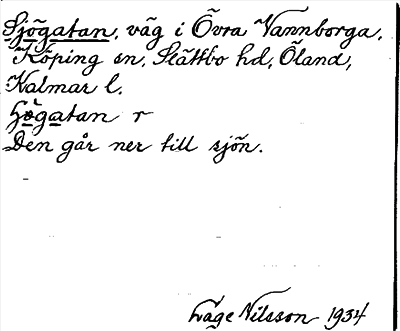 Sjögatan, väg i Övra Vannborga,
Köping sn, Slättbo hd, Öland,
Kalmar l.
Den går ner till sjön.
Låge Nilsson 1934